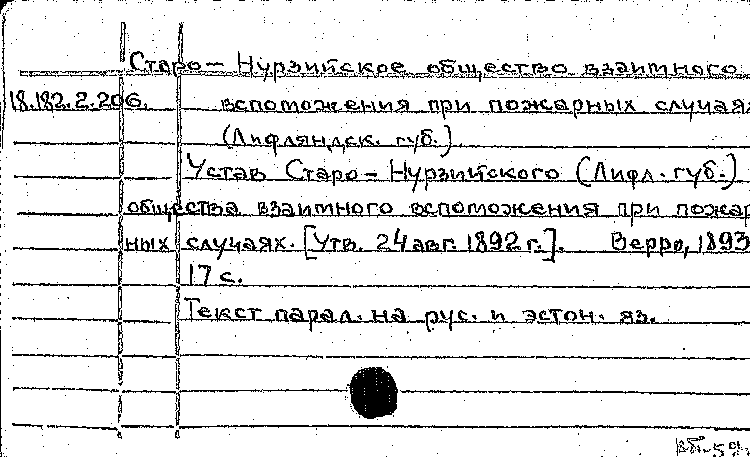 Старо-Нурзийское общество взаимного
18.182.2.206. вспоможения при пожарных случаях
(Лифляндск. губ.)
Устав Старо-Нурзийского (Лифл. губ.)
общества взаимного вспоможения при пожар
ных случаях. [Утв. 24 авг. 1892 г.]. Верро, 1893
17 с.
Текст парал. на рус. и эстон. яз.